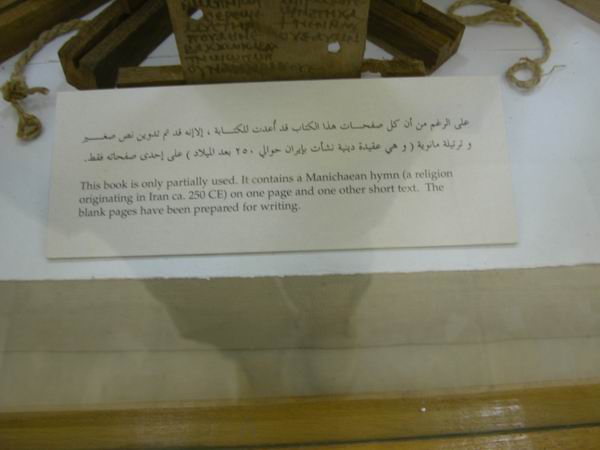 على الرغم من أن كل صفحات هذا الكتاب قد أعدت للكتابة ، إلاإنه قد تم تدوين نص صغير
و ترتيلة مانوية ( و هي عقيدة دينية نشأت بإيران حوالي ٢٥٠ بعد الميلاد ) على إحدى صفحاته فقط.
This book is only partially used. It contains a Manichaean hymn (a religion
originating in Iran ca. 250 CE) on one page and one other short text. The
blank pages have been prepared for writing.